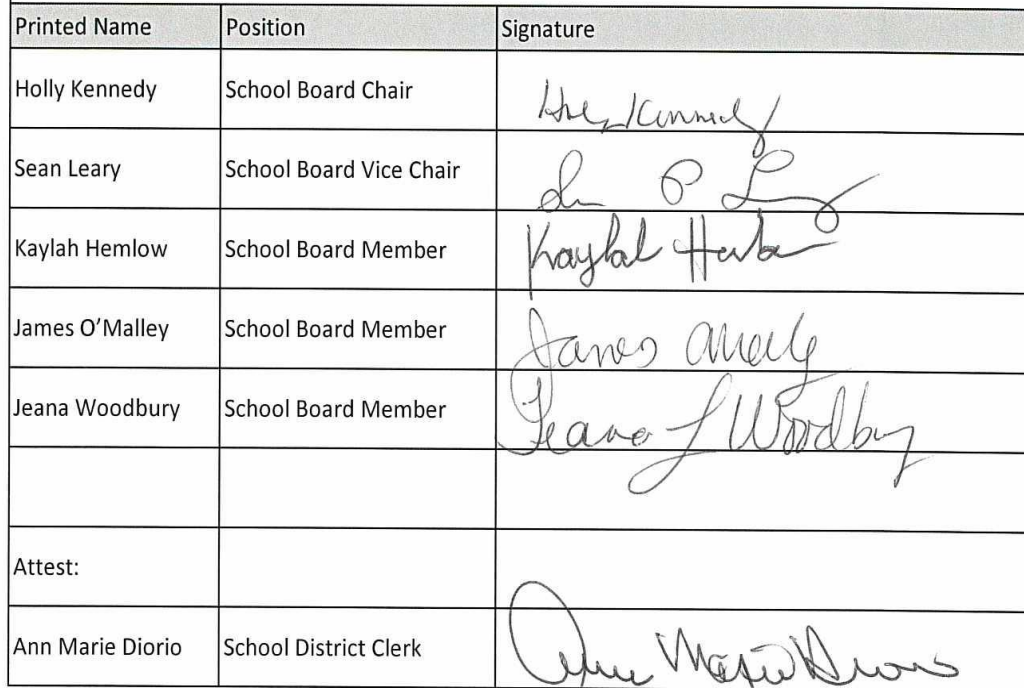 Printed Name Position Signature
Holly Kennedy School Board Chair Holly Kennedy
Sean Leary School Board Vice Chair Sean P Leary
Kaylah Hemlow School Board Member Kaylah Hemlow
James O’Malley School Board Member James OMalley
Jeana Woodbury School Board Member Jeana L Woodbury
Attest:
Ann Marie Diorio School District Clerk Ann Marie Diorio